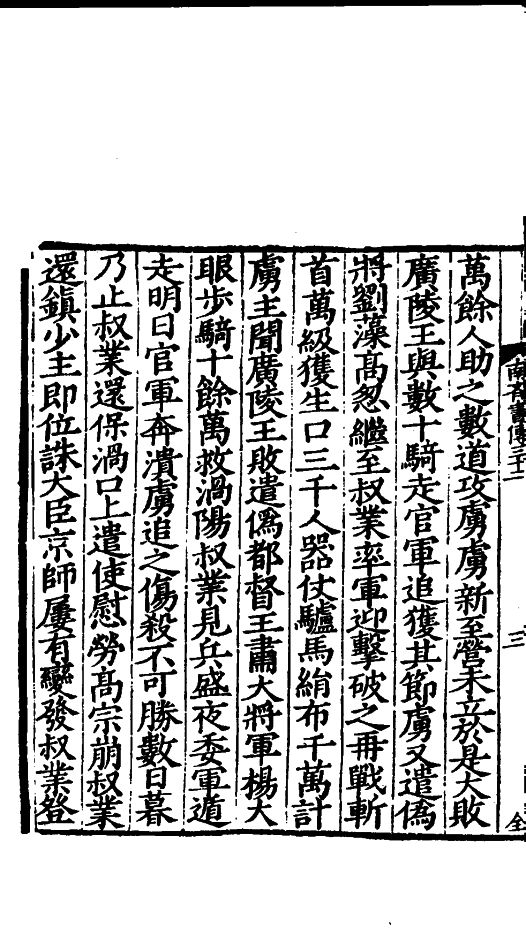 萬餘人助之數道攻虜虜新至營未立於是大敗
廣陵王與數十騎走官軍追獲其節虜又遣偽
將劉藻高怱繼至叔業率軍迎擊破之再戰斬
首萬級獲生口三千人器仗驢馬絹布千萬計
虜主聞廣陵王敗遣偽都督王肅大將軍楊大
眼步騎十餘萬救渦陽叔業見兵盛夜委軍遁
走明日官軍奔潰虜追之傷殺不可勝數日暮
乃止叔業還保渦口上遣使慰勞高宗崩叔業
還鎮少主即位誅大臣京師屢有變發叔業登
南齊書傳三十二
三